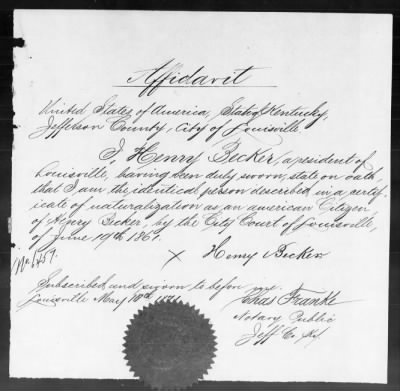 Affidavit
United States of America, State of Kentucky,
Jefferson County, City of Louisville
I, Henry Becker, a resident of
Louisville, having been duly sworn, state on oath,
that I am the identical person described in a certif-
icate of naturalization as an american Citizen
of Henry Becker, by the City Court of Louisville,
of June 19th 1861.
X Henry Becker
Subscribed and sworn to before me.
Louisville May 10th
Chas Franke
Notary Public
Jeff Co. Ky.